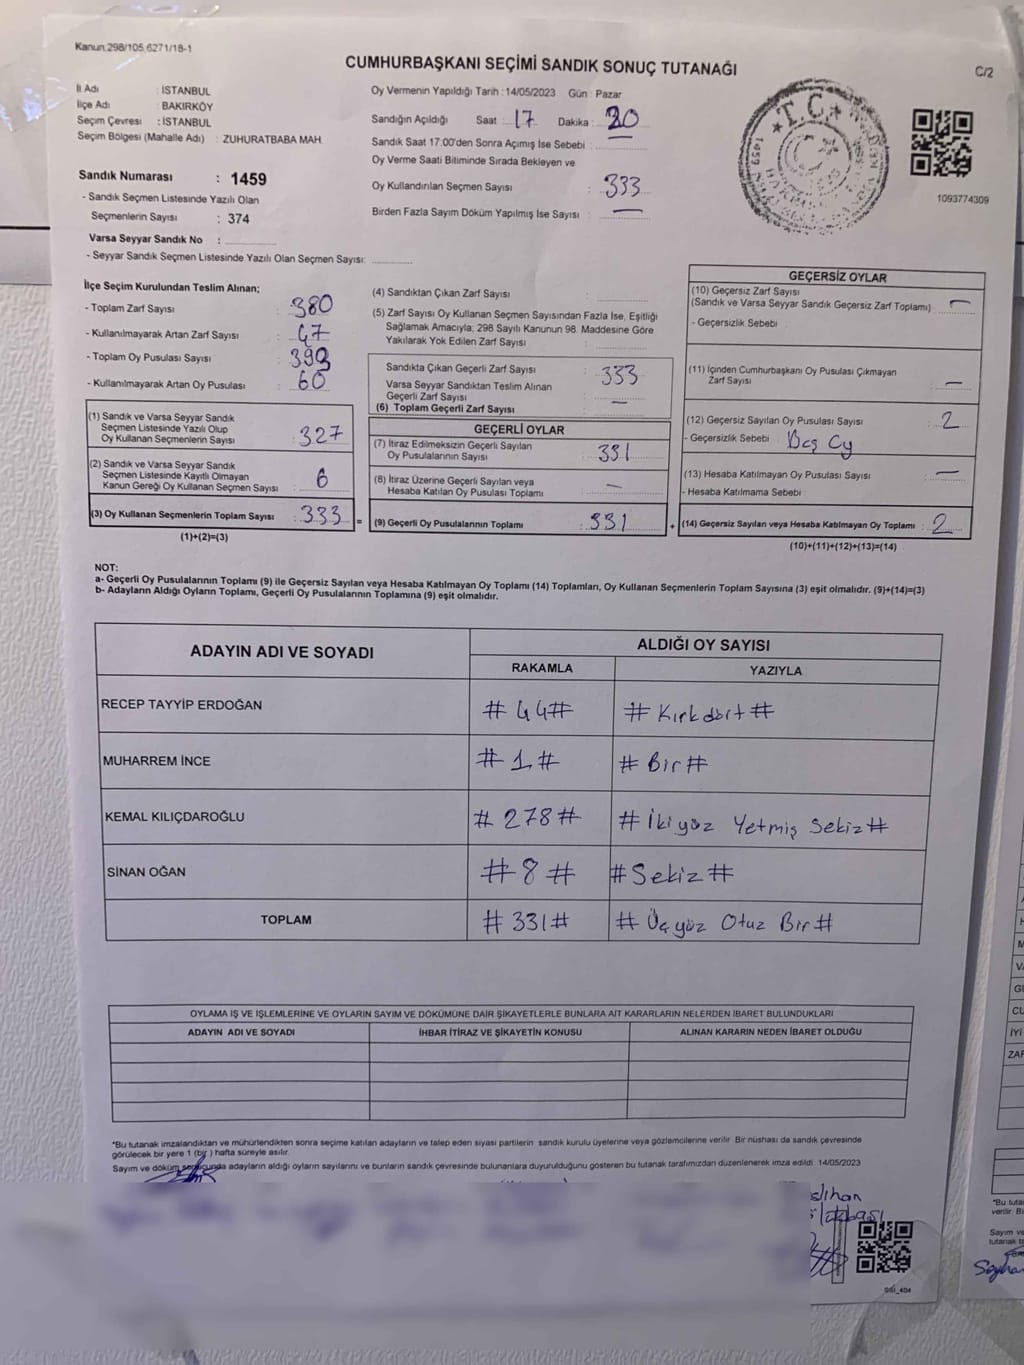 Kanun.298/105.6271/18-1
CUMHURBAŞKANI SEÇİMİ SANDIK SONUÇ TUTANAĞI
C/2
İl Adı : İSTANBUL
İlçe Adı : BAKIRKÖY
Seçim Çevresi : İSTANBUL
Seçim Bölgesi (Mahalle Adı) : ZUHURATBABA MAH.
Sandık Numarası : 1459
- Sandık Seçmen Listesinde Yazılı Olan
Seçmenlerin Sayısı : 374
Varsa Seyyar Sandık No :
- Seyyar Sandık Seçmen Listesinde Yazılı Olan Seçmen Sayısı:
Oy Vermenin Yapıldığı Tarih : 14/05/2023 Gün : Pazar
Sandığın Açıldığı Saat : 17 Dakika : 20
Sandık Saat 17.00'den Sonra Açımış İse Sebebi :
Oy Verme Saati Bitiminde Sırada Bekleyen ve
Oy Kullandırılan Seçmen Sayısı : 333
Birden Fazla Sayım Döküm Yapılmış İse Sayısı : —
T.C.
1459
1093774309
İlçe Seçim Kurulundan Teslim Alınan;
- Toplam Zarf Sayısı : 380
- Kullanılmayarak Artan Zarf Sayısı : 47
- Toplam Oy Pusulası Sayısı : 393
- Kullanılmayarak Artan Oy Pusulası : 60
(1) Sandık ve Varsa Seyyar Sandık
Seçmen Listesinde Yazılı Olup
Oy Kullanan Seçmenlerin Sayısı : 327
(2) Sandık ve Varsa Seyyar Sandık
Seçmen Listesinde Kayıtlı Olmayan
Kanun Gereği Oy Kullanan Seçmen Sayısı : 6
(3) Oy Kullanan Seçmenlerin Toplam Sayısı : 333 =
(1)+(2)=(3)
(4) Sandıktan Çıkan Zarf Sayısı :
(5) Zarf Sayısı Oy Kullanan Seçmen Sayısından Fazla İse, Eşitliği
Sağlamak Amacıyla; 298 Sayılı Kanunun 98. Maddesine Göre
Yakılarak Yok Edilen Zarf Sayısı :
Sandıkta Çıkan Geçerli Zarf Sayısı : 333
Varsa Seyyar Sandıktan Teslim Alınan
Geçerli Zarf Sayısı : —
(6) Toplam Geçerli Zarf Sayısı :
GEÇERLİ OYLAR
(7) İtiraz Edilmeksizin Geçerli Sayılan
Oy Pusulalarının Sayısı : 331
(8) İtiraz Üzerine Geçerli Sayılan veya
Hesaba Katılan Oy Pusulası Toplamı : —
(9) Geçerli Oy Pusulalarının Toplamı : 331 +
GEÇERSİZ OYLAR
(10) Geçersiz Zarf Sayısı
(Sandık ve Varsa Seyyar Sandık Geçersiz Zarf Toplamı) : —
- Geçersizlik Sebebi :
(11) İçinden Cumhurbaşkanı Oy Pusulası Çıkmayan
Zarf Sayısı : —
(12) Geçersiz Sayılan Oy Pusulası Sayısı : 2
- Geçersizlik Sebebi : Boş Oy
(13) Hesaba Katılmayan Oy Pusulası Sayısı : —
- Hesaba Katılmama Sebebi :
(14) Geçersiz Sayılan veya Hesaba Katılmayan Oy Toplamı : 2
(10)+(11)+(12)+(13)=(14)
NOT:
a- Geçerli Oy Pusulalarının Toplamı (9) ile Geçersiz Sayılan veya Hesaba Katılmayan Oy Toplamı (14) Toplamları, Oy Kullanan Seçmenlerin Toplam Sayısına (3) eşit olmalıdır. (9)+(14)=(3)
b- Adayların Aldığı Oyların Toplamı, Geçerli Oy Pusulalarının Toplamına (9) eşit olmalıdır.
ADAYIN ADI VE SOYADI
ALDIĞI OY SAYISI
RAKAMLA YAZIYLA
RECEP TAYYİP ERDOĞAN # 44# # Kırkdört #
MUHARREM İNCE # 1 # # Bir #
KEMAL KILIÇDAROĞLU # 278 # # İkiyüz Yetmiş Sekiz #
SİNAN OĞAN # 8 # # Sekiz #
TOPLAM # 331 # # Üçyüz Otuz Bir #
OYLAMA İŞ VE İŞLEMLERİNE VE OYLARIN SAYIM VE DÖKÜMÜNE DAİR ŞİKAYETLERLE BUNLARA AİT KARARLARIN NELERDEN İBARET BULUNDUKLARI
ADAYIN ADI VE SOYADI İHBAR İTİRAZ VE ŞİKAYETİN KONUSU ALINAN KARARIN NEDEN İBARET OLDUĞU
*Bu tutanak imzalandıktan ve mühürlendikten sonra seçime katılan adayların ve talep eden siyasi partilerin sandık kurulu üyelerine veya gözlemcilerine verilir. Bir nüshası da sandık çevresinde
görülecek bir yere 1 (bir ) hafta süreyle asılır.
Sayım ve döküm sonucunda adayların aldığı oyların sayılarını ve bunların sandık çevresinde bulunanlara duyurulduğunu gösteren bu tutanak tarafımızdan düzenlenerek imza edildi. 14/05/2023
slihan